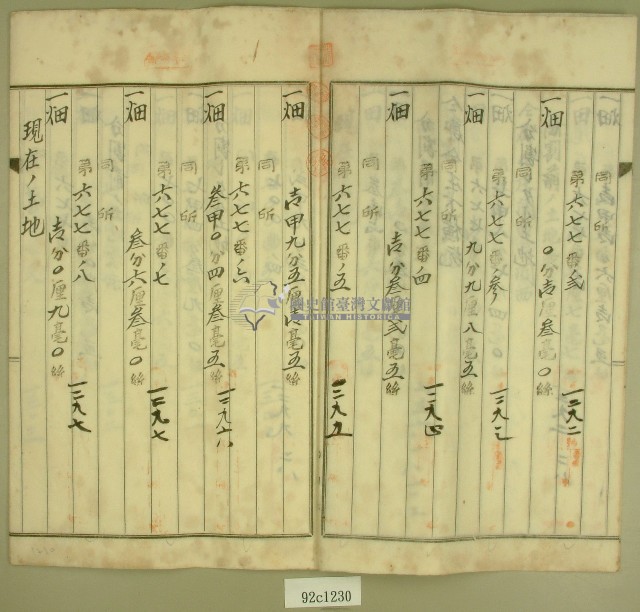 一畑 同所
第六七七番弐 一二九二
一畑 〇分壱厘叁毫〇絲
同所
第六七七番ノ叁
一畑 九分九厘八毫五絲
同所
第六七七番四 一二九四
一畑 壱分叁厘弐毫五絲
同所
第六七七番ノ五 一二九五
一畑 壱甲九分五厘壱毫五絲
同所
第六七七番ノ六 一二九六
一畑 叁甲〇分四厘叁毫五絲
同所
第六七七番ノ七 一二九七
一畑 叁分六厘叁毫〇絲
同所
第六七七番ノ八 一二九七
一畑 壱分〇厘九毫〇絲
現在ノ土地
國史館臺灣文獻館
TAIWAN HISTORICA
92c1230